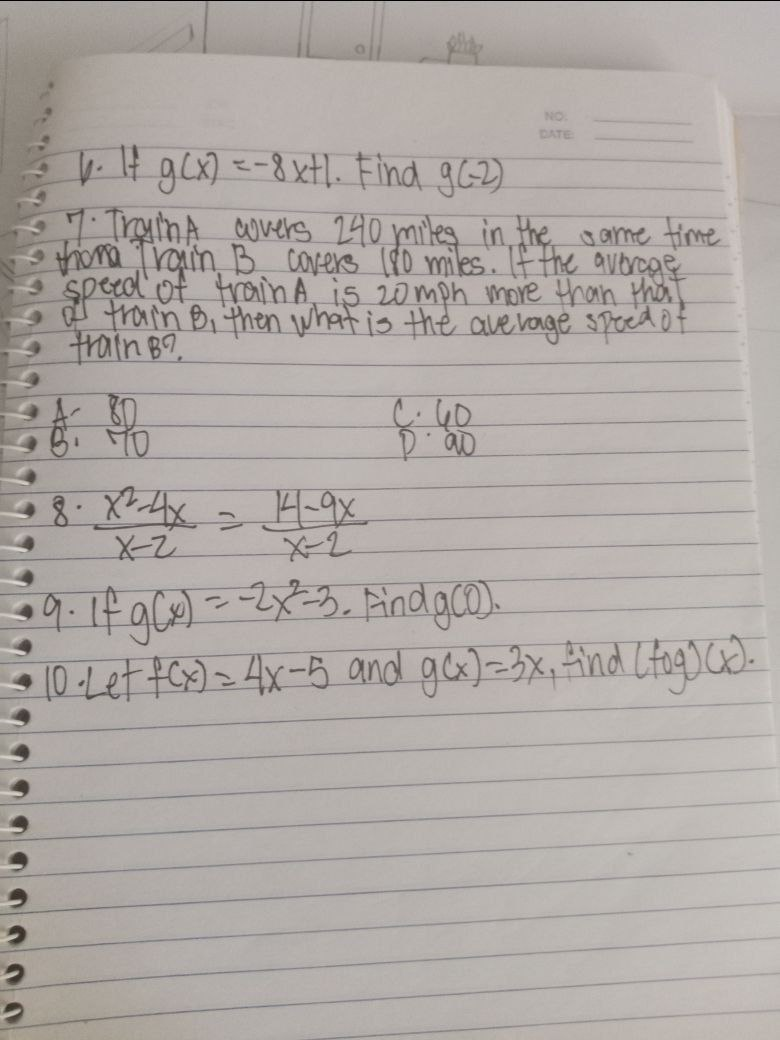 NO:
DATE:
6. If g(x) = -8x+1. Find g(-2)
7. Train A covers 240 miles in the same time
Train B covers 180 miles. If the average
speed of train A is 20mph more than that
of train B, then what is the average speed of
train B?
A. 80 C. 60
B. 70 D. 90
8. x²-4x / x-2 = 14-9x / x-2
9. If g(x) = -2x²-3. Find g(0).
10. Let f(x) = 4x-5 and g(x)=3x, find (fog)(x).